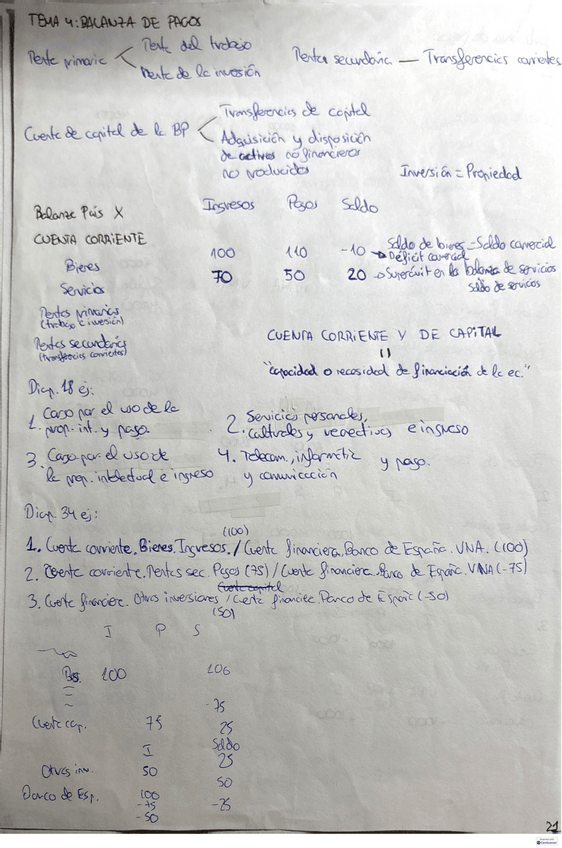 TEMA 4: BALANZA DE PAGOS
Renta primaria < Renta del trabajo
Renta de la inversión
Renta secundaria — Transferencias corrientes
Cuenta de capital de la BP < Transferencias de capital
Adquisición y disposición
de activos no financieros
no producidos
Inversión = Propiedad
Balanza País X Ingresos Pagos Saldo
CUENTA CORRIENTE
Bienes 100 110 -10 → Saldo de bienes = Saldo comercial
Déficit comercial
Servicios 70 50 20 → Superávit en la balanza de servicios
Saldo de servicios
Rentas primarias
(trabajo e inversión)
Rentas secundarias
(transferencias corrientes)
CUENTA CORRIENTE Y DE CAPITAL
"capacidad o necesidad de financiación de la ec."
Diap. 18 ej:
1. Cargo por el uso de la
prop. int. y pago.
2. Servicios personales,
culturales y recreativos e ingreso
3. Cargo por el uso de
la prop. intelectual e ingreso
4. Telecom., informática
y comunicación y pago.
Diap. 34 ej:
1. Cuenta corriente. Bienes. Ingresos. (100) / Cuenta financiera. Banco de España. VNA. (100)
2. Cuenta corriente. Rentas sec. Pagos (75) / Cuenta financiera. Banco de España. VNA (-75)
3. Cuenta financiera. Otras inversiones (50) / Cuenta financiera. Banco de España (-50)
I P S
Bs. 100 106
-75
Cuenta cap. 75 25
I Saldo
25
Otras inv. 50 50
Banco de Esp. 100
-75 -25
-50
21